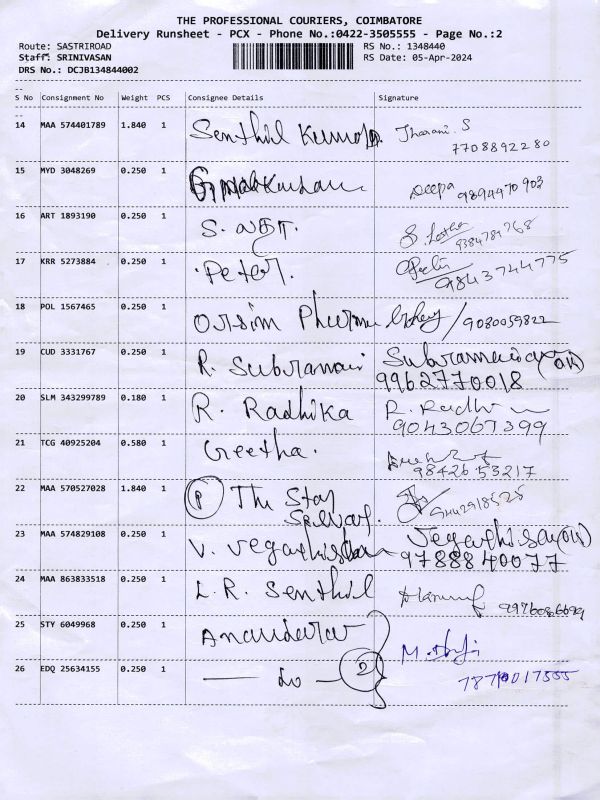 THE PROFESSIONAL COURIERS, COIMBATORE
Delivery Runsheet - PCX - Phone No.:0422-3505555 - Page No.:2
Route: SASTRIROAD RS No.: 1348440
Staff: SRINIVASAN RS Date: 05-Apr-2024
DRS No.: DCJB134844002
S No Consignment No Weight PCS Consignee Details Signature
14 MAA 574401789 1.840 1 Senthil Kumar Tharani. S
7708892280
15 MYD 3048269 0.250 1 Deepa 9894970903
16 ART 1893190 0.250 1 S. லதா. S. Latha
9384784768
17 KRR 5273884 0.250 1 Peter.
9843744775
18 POL 1567465 0.250 1 Orsim / 9080059822
19 CUD 3331767 0.250 1 R. Subramani
9962770018
20 SLM 343299789 0.180 1 R. Radhika R. Radhi
9043067399
21 TCG 40925204 0.580 1 Geetha.
9842653217
22 MAA 570527028 1.840 1 (P) The Star
Selvaf.
23 MAA 574829108 0.250 1 V.
9788840077
24 MAA 863833518 0.250 1 L. R. Senthil
25 STY 6049968 0.250 1
M.
26 EDQ 25634155 0.250 1 — Do — 2